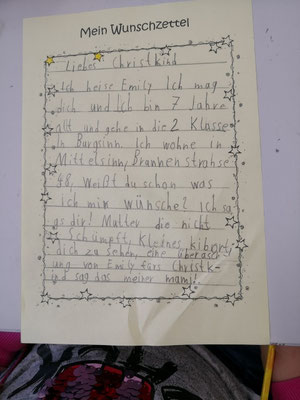 Mein Wunschzettel
Liebes Christkind
Ich heise Emily Ich mag
dich und Ich bin 7 Jahre
alt und gehe in die 2 Klasse
in Burgsinn. Ich wohne in
Mittelsinn, Brannenstrohse
48, Weißt du schon was
ich mir wünsche? Ich sa
gs dir! Mutter die nicht
Schümpft, Kleines
dich zu sehen, eine überasch
ung von Emily fürs Christk-
ind sag das meiner mama!